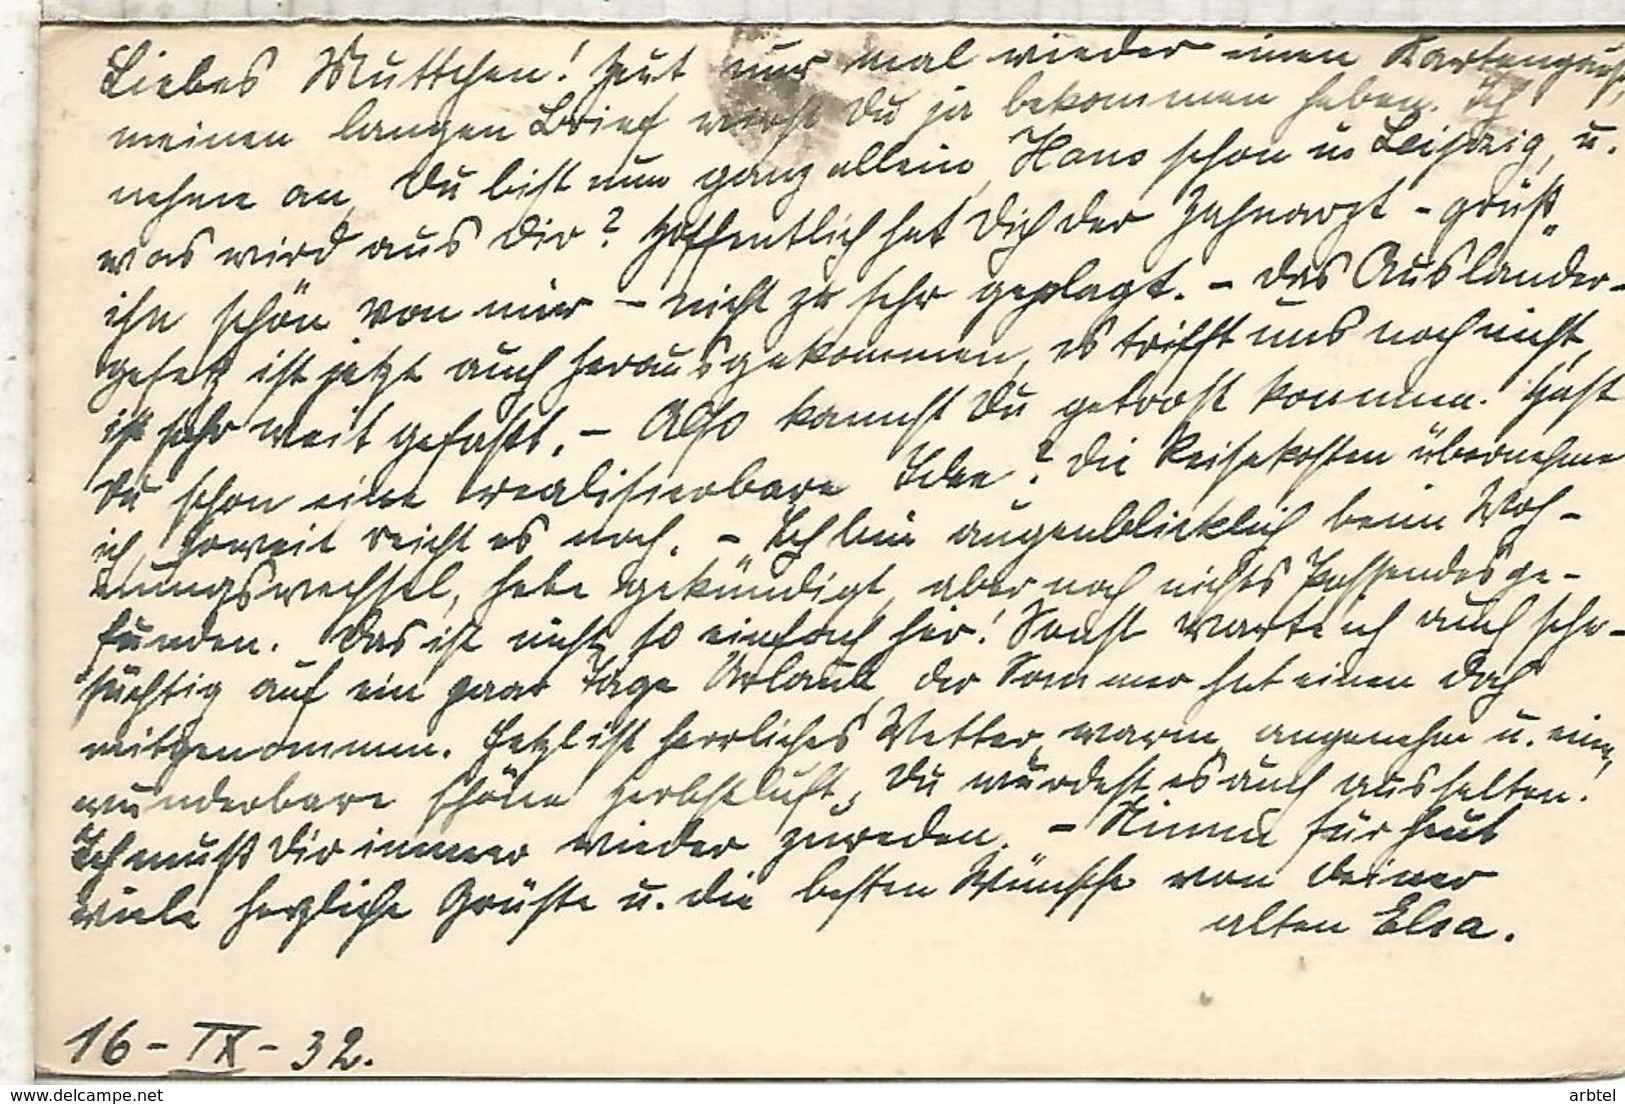 Liebes Muttchen! Heut nur mal wieder einen Kartengruß,
meinen langen Brief wirst Du ja bekommen haben. Ich
nehme an, Du bist nun ganz allein, Hans schon in Leipzig, u.
was wird aus Dir? Hoffentlich hat Dich der Zahnarzt – grüß
ihn schön von mir – nicht zu sehr geplagt. – Das Ausländer-
gesetz ist jetzt auch herausgekommen, es trifft uns noch nicht,
ist sehr weit gefaßt. – Also kannst Du getrost kommen. Hast
Du schon eine realisierbare Idee? Die Reisekosten übernehme
ich, soweit reicht es noch. – Ich bin augenblicklich beim Woh-
nungswechsel, habe gekündigt, aber noch nichts Passendes ge-
funden. Das ist nicht so einfach hier! Sonst warte ich auch sehn-
süchtig auf ein paar Tage Urlaub, der Sommer hat einen doch
mitgenommen. Jetzt ist herrliches Wetter, warm, angenehm u. eine
wunderbare schöne Herbstluft, Du würdest es auch aushalten.
Ich muß Dir immer wieder zureden. – Nimm für heut
viele herzliche Grüße u. die besten Wünsche von Deiner
alten Elsa.
16-IX-32.
delcampe.net
arbtel